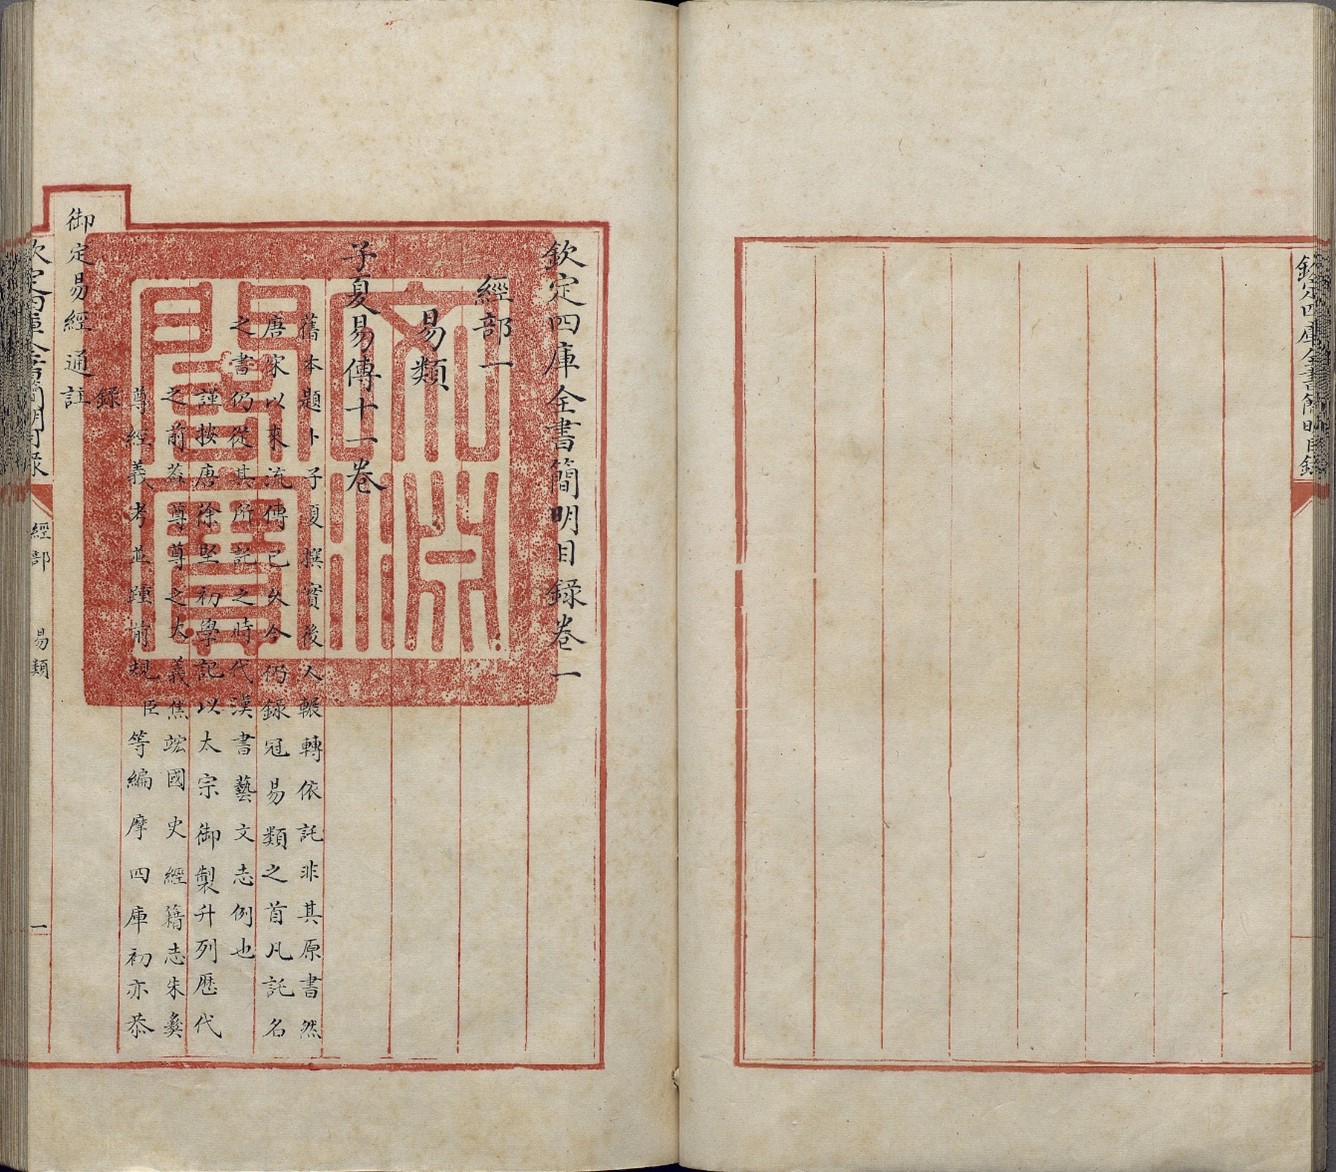 欽定四庫全書簡明目錄
欽定四庫全書簡明目錄卷一
經部一
易類
子夏易傳十一卷
舊本題卜子夏撰實後人輾轉依託非其原書然
唐宋以來流傳已久今仍錄冠易類之首凡託名
之書仍從其所託之時代漢書藝文志例也
謹按唐徐堅初學記以太宗御製升列歷代
之前蓋尊尊之大義焦竑國史經籍志朱彝
尊經義考並踵前規臣等編摩四庫初亦恭
錄
御定易經通註
欽定四庫全書簡明目錄
經部 易類
一
文淵閣寶